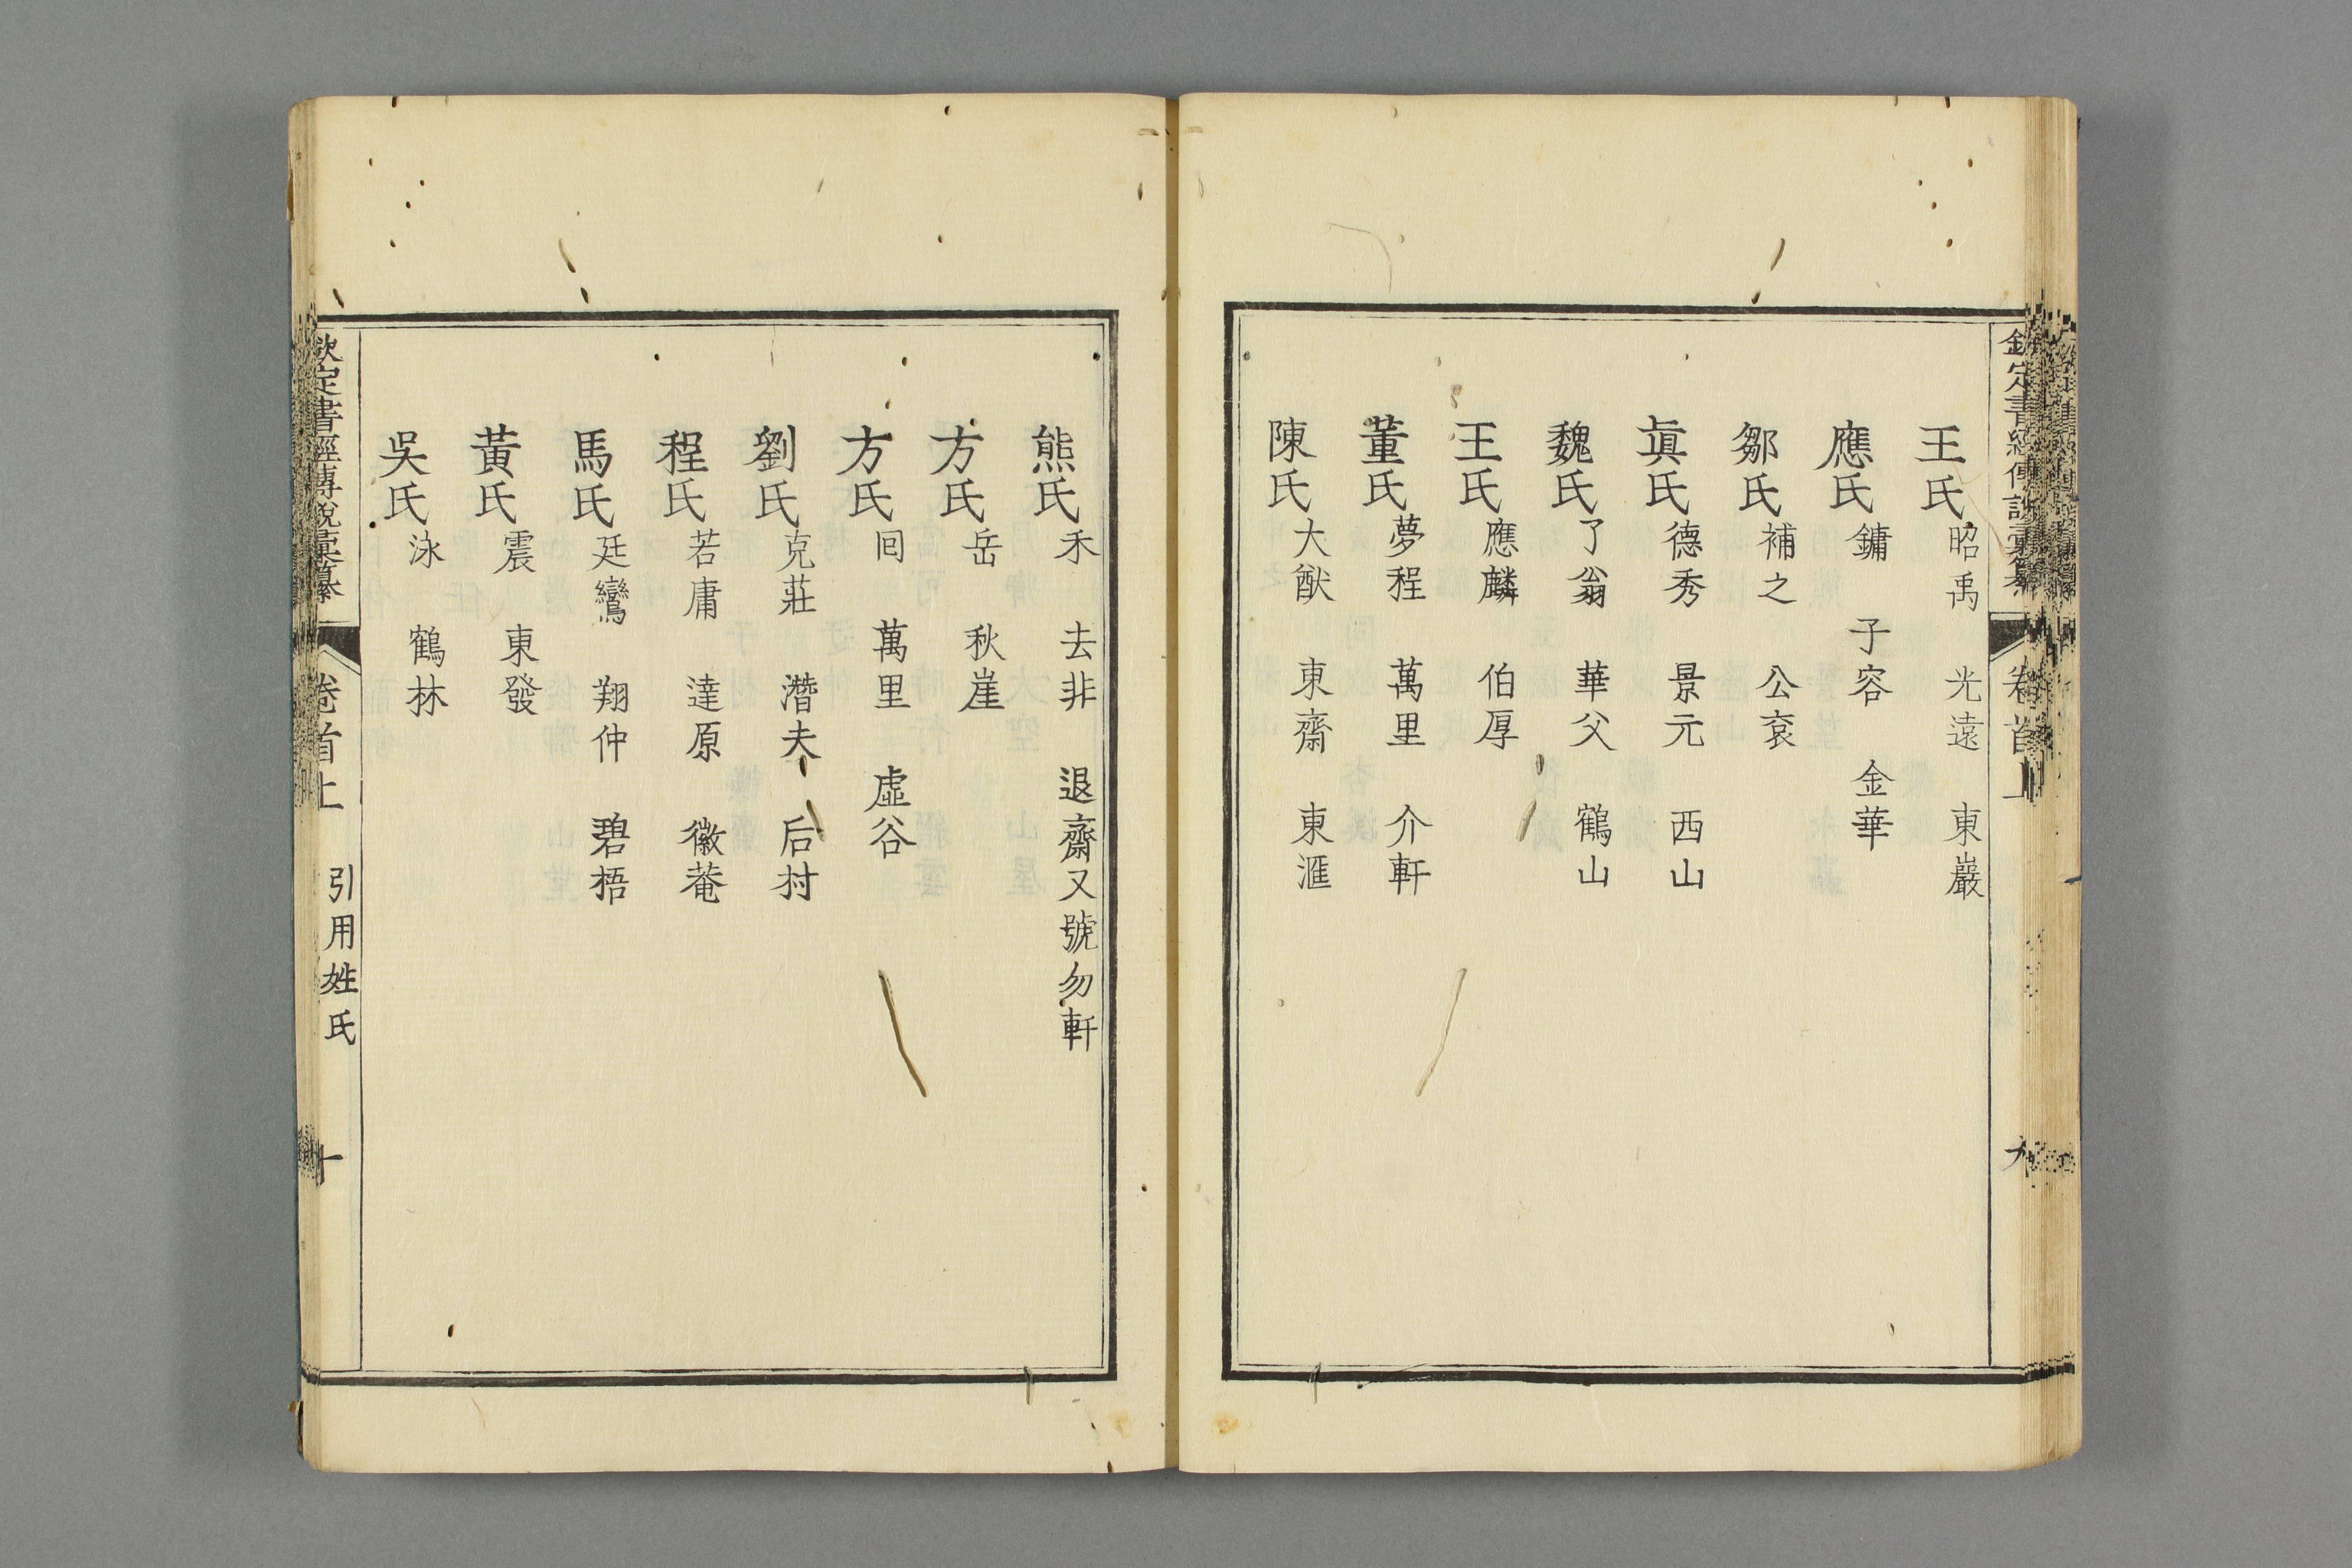 王氏 昭禹 光遠 東巖
應氏 鏞 子容 金華
鄒氏 補之 公袞
眞氏 德秀 景元 西山
魏氏 了翁 華父 鶴山
王氏 應麟 伯厚
董氏 夢程 萬里 介軒
陳氏 大猷 東齋 東滙
熊氏 禾 去非 退齋又號勿軒
方氏 岳 秋崖
方氏 囘 萬里 虛谷
劉氏 克莊 潛夫 后村
程氏 若庸 達原 徽菴
馬氏 廷鸞 翔仲 碧梧
黃氏 震 東發
吳氏 泳 鶴林
欽定書經傳說彙纂 卷首上 引用姓氏 十